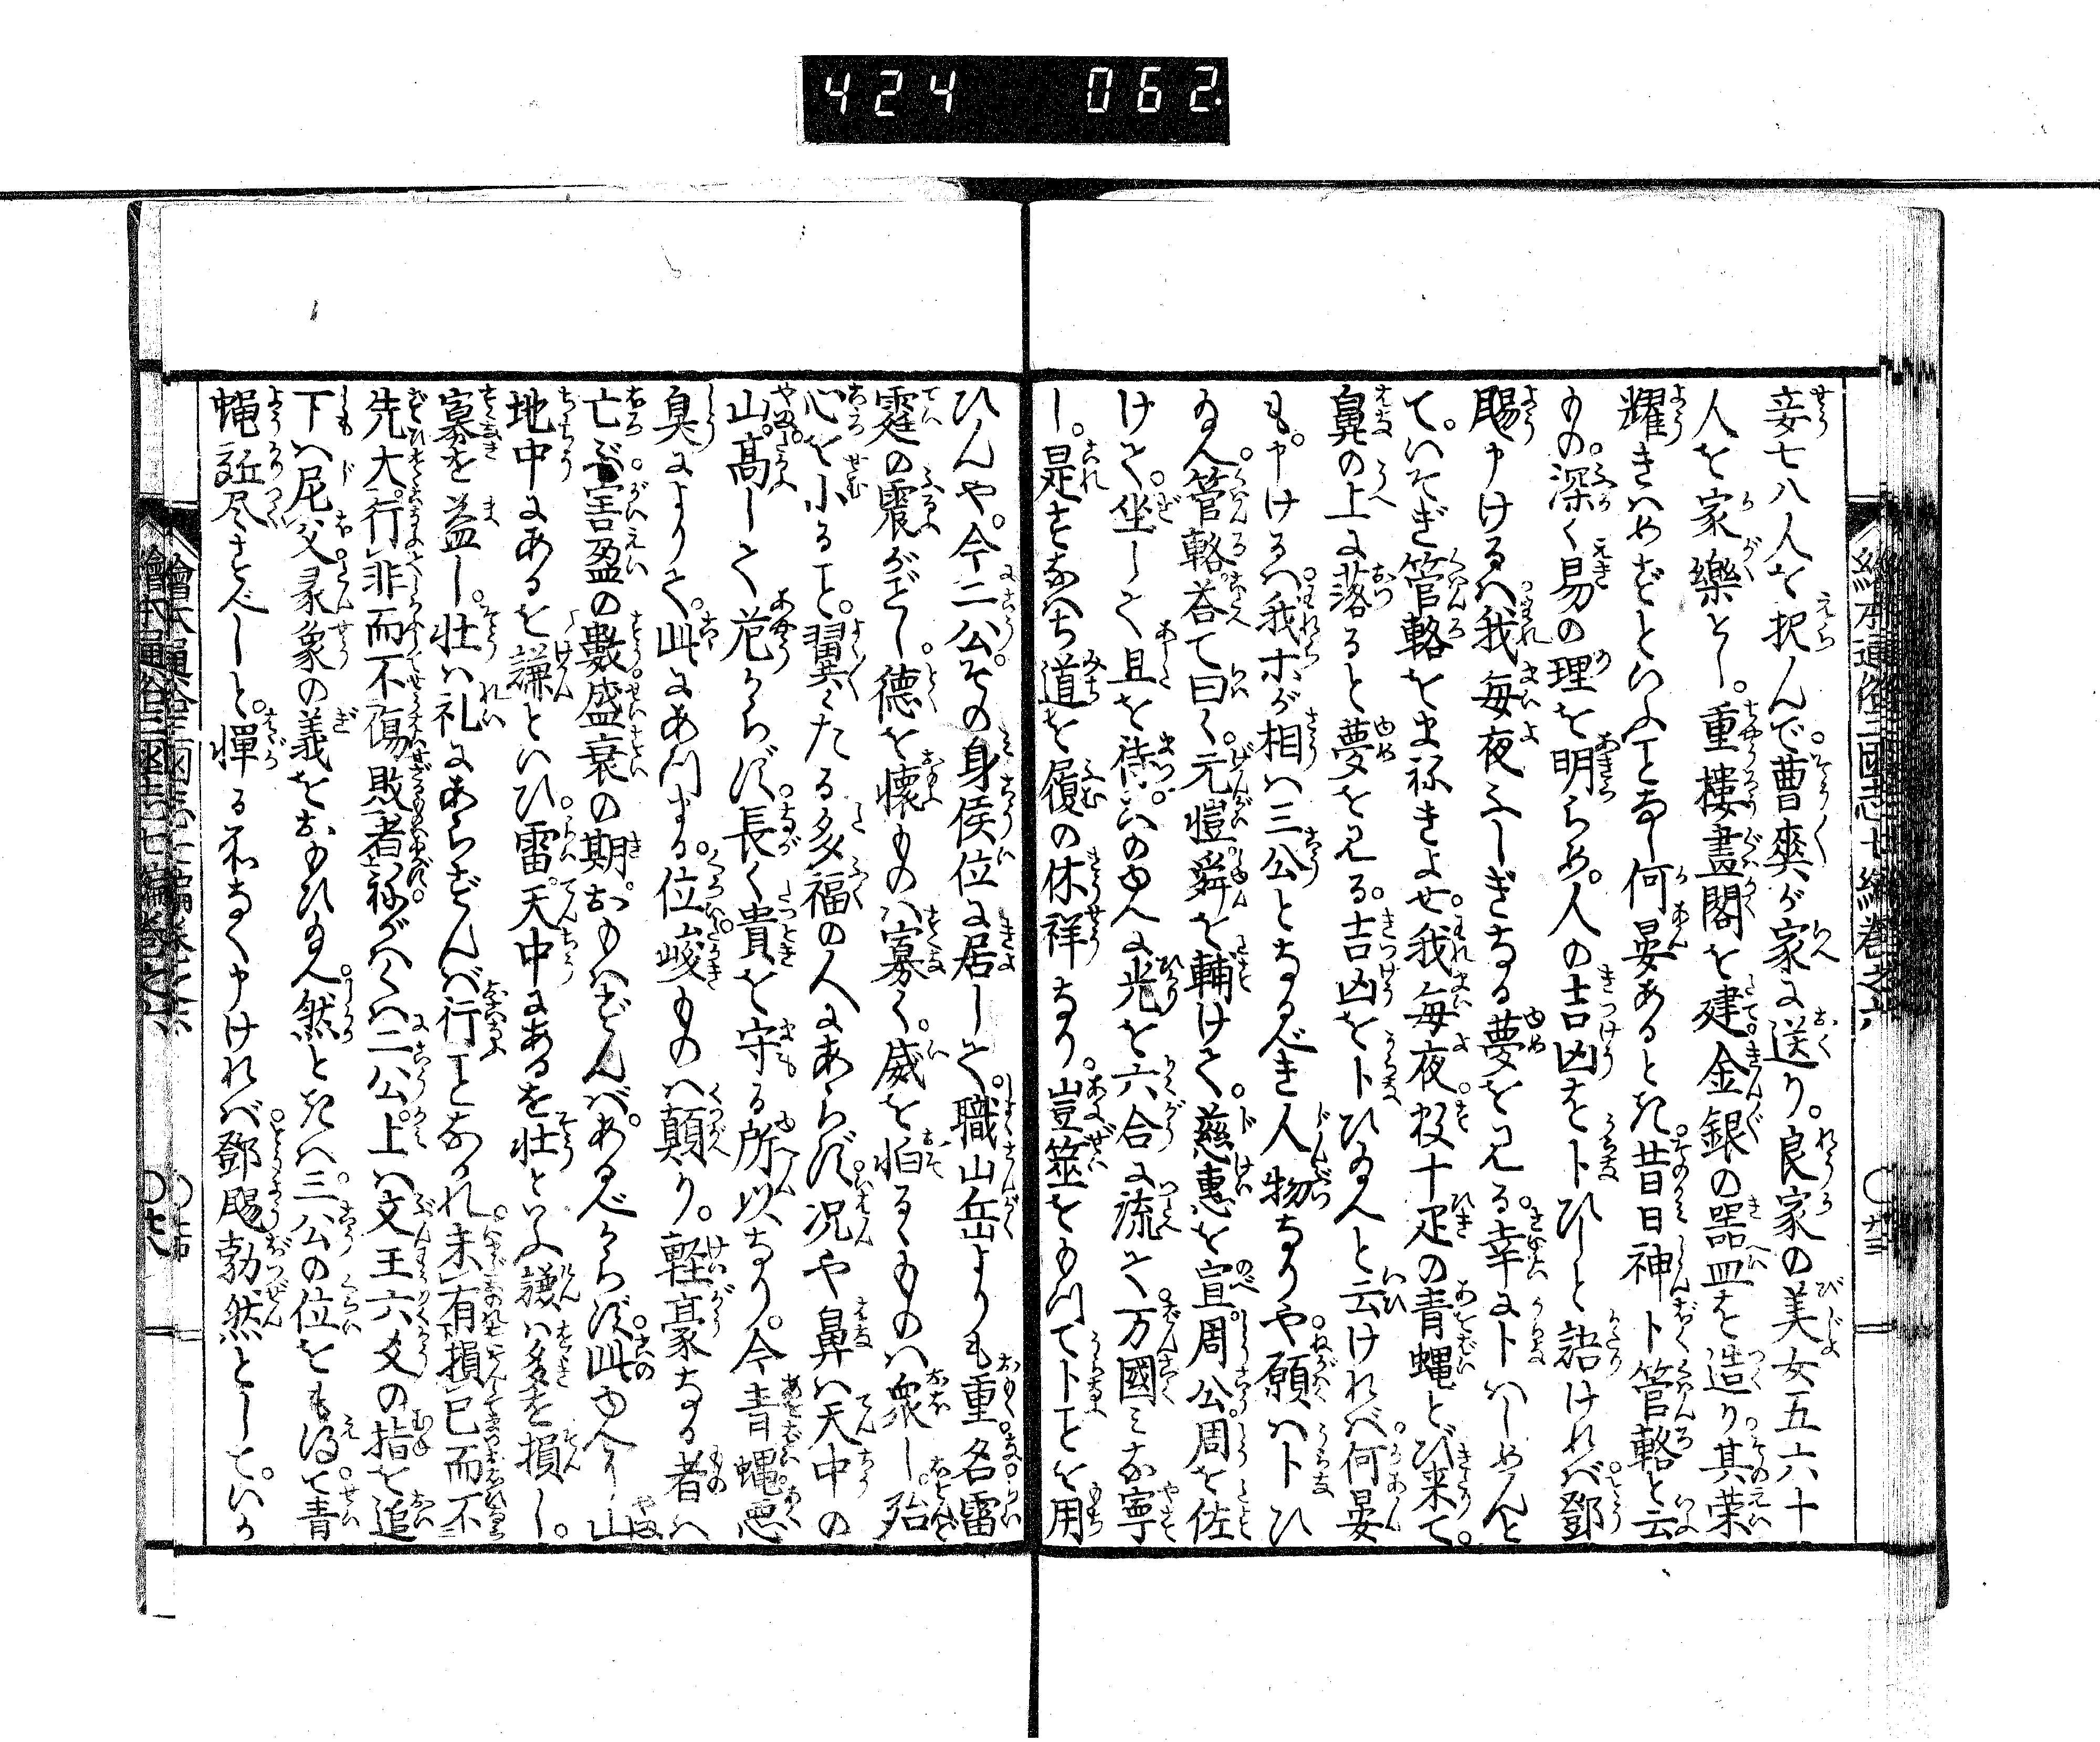 424 062
繪本通俗三国志七編巻之六
妾七八人を択んで曹爽が家に送り。良家の美女五六十
人を家樂とし。重樓畫閣を建。金銀の噐皿を造り其栄
耀きはめずといふことなし何晏あるとき昔日神卜管輅と云
もの。深く易の理を明らめ。人の吉凶を卜ひしと語けれバ鄧
颺申けるハ我毎夜ふしぎなる夢を見る。幸に卜ハしめんと
て。いそぎ管輅をまねきよせ。我毎夜。数十疋の青蝿とび来て。
鼻の上に落ると夢を見る。吉凶を卜ひ玉へと云けれバ。何晏
も。申けるハ。我ホが相ハ三公となるべき人物なりや。願ハ卜ひ
玉へ。管輅答て曰く。元愷。舜を輔けて。慈惠を宣。周公。周を佐
けて。坐して旦を待。いのゆへに光を六合に流て。万國みな寧
し。是すなハち道を履の休祥なり。豈筮をもつて卜ことを用
ひんや。今二公。その身侯位に居して。職山岳よりも重。名雷
霆の震がごとし。徳を懐ものハ寡く。威を怕るゝものハ衆し。殆
心を小ること。翼々たる多福の人にあらず。况や鼻ハ天中の
山。高して危からず。長く貴を守る所以なり。今青蝿悪
臭によりて。此にあつまる。位峻ものハ顛り。軽豪なる者ハ
亡ぶ。害盈の數盛衰の期。おもハずんバ。あるべからず。此ゆへに山
地中にあるを謙といひ。雷。天中にあるを壮といふ。謙ハ多を損し。
寡を益し。壮ハ礼にあらずんバ行ことなかれ。未有損已而不
先大。行非而不傷敗者。ねがハくハ二公。上ハ文王六爻の指を追
下ハ尼父彖象の義をおもひ玉へ。然ときハ。三公の位をも得て。青
蝿迯尽すべしと。憚る処なく申けれバ。鄧颺勃然として。いか